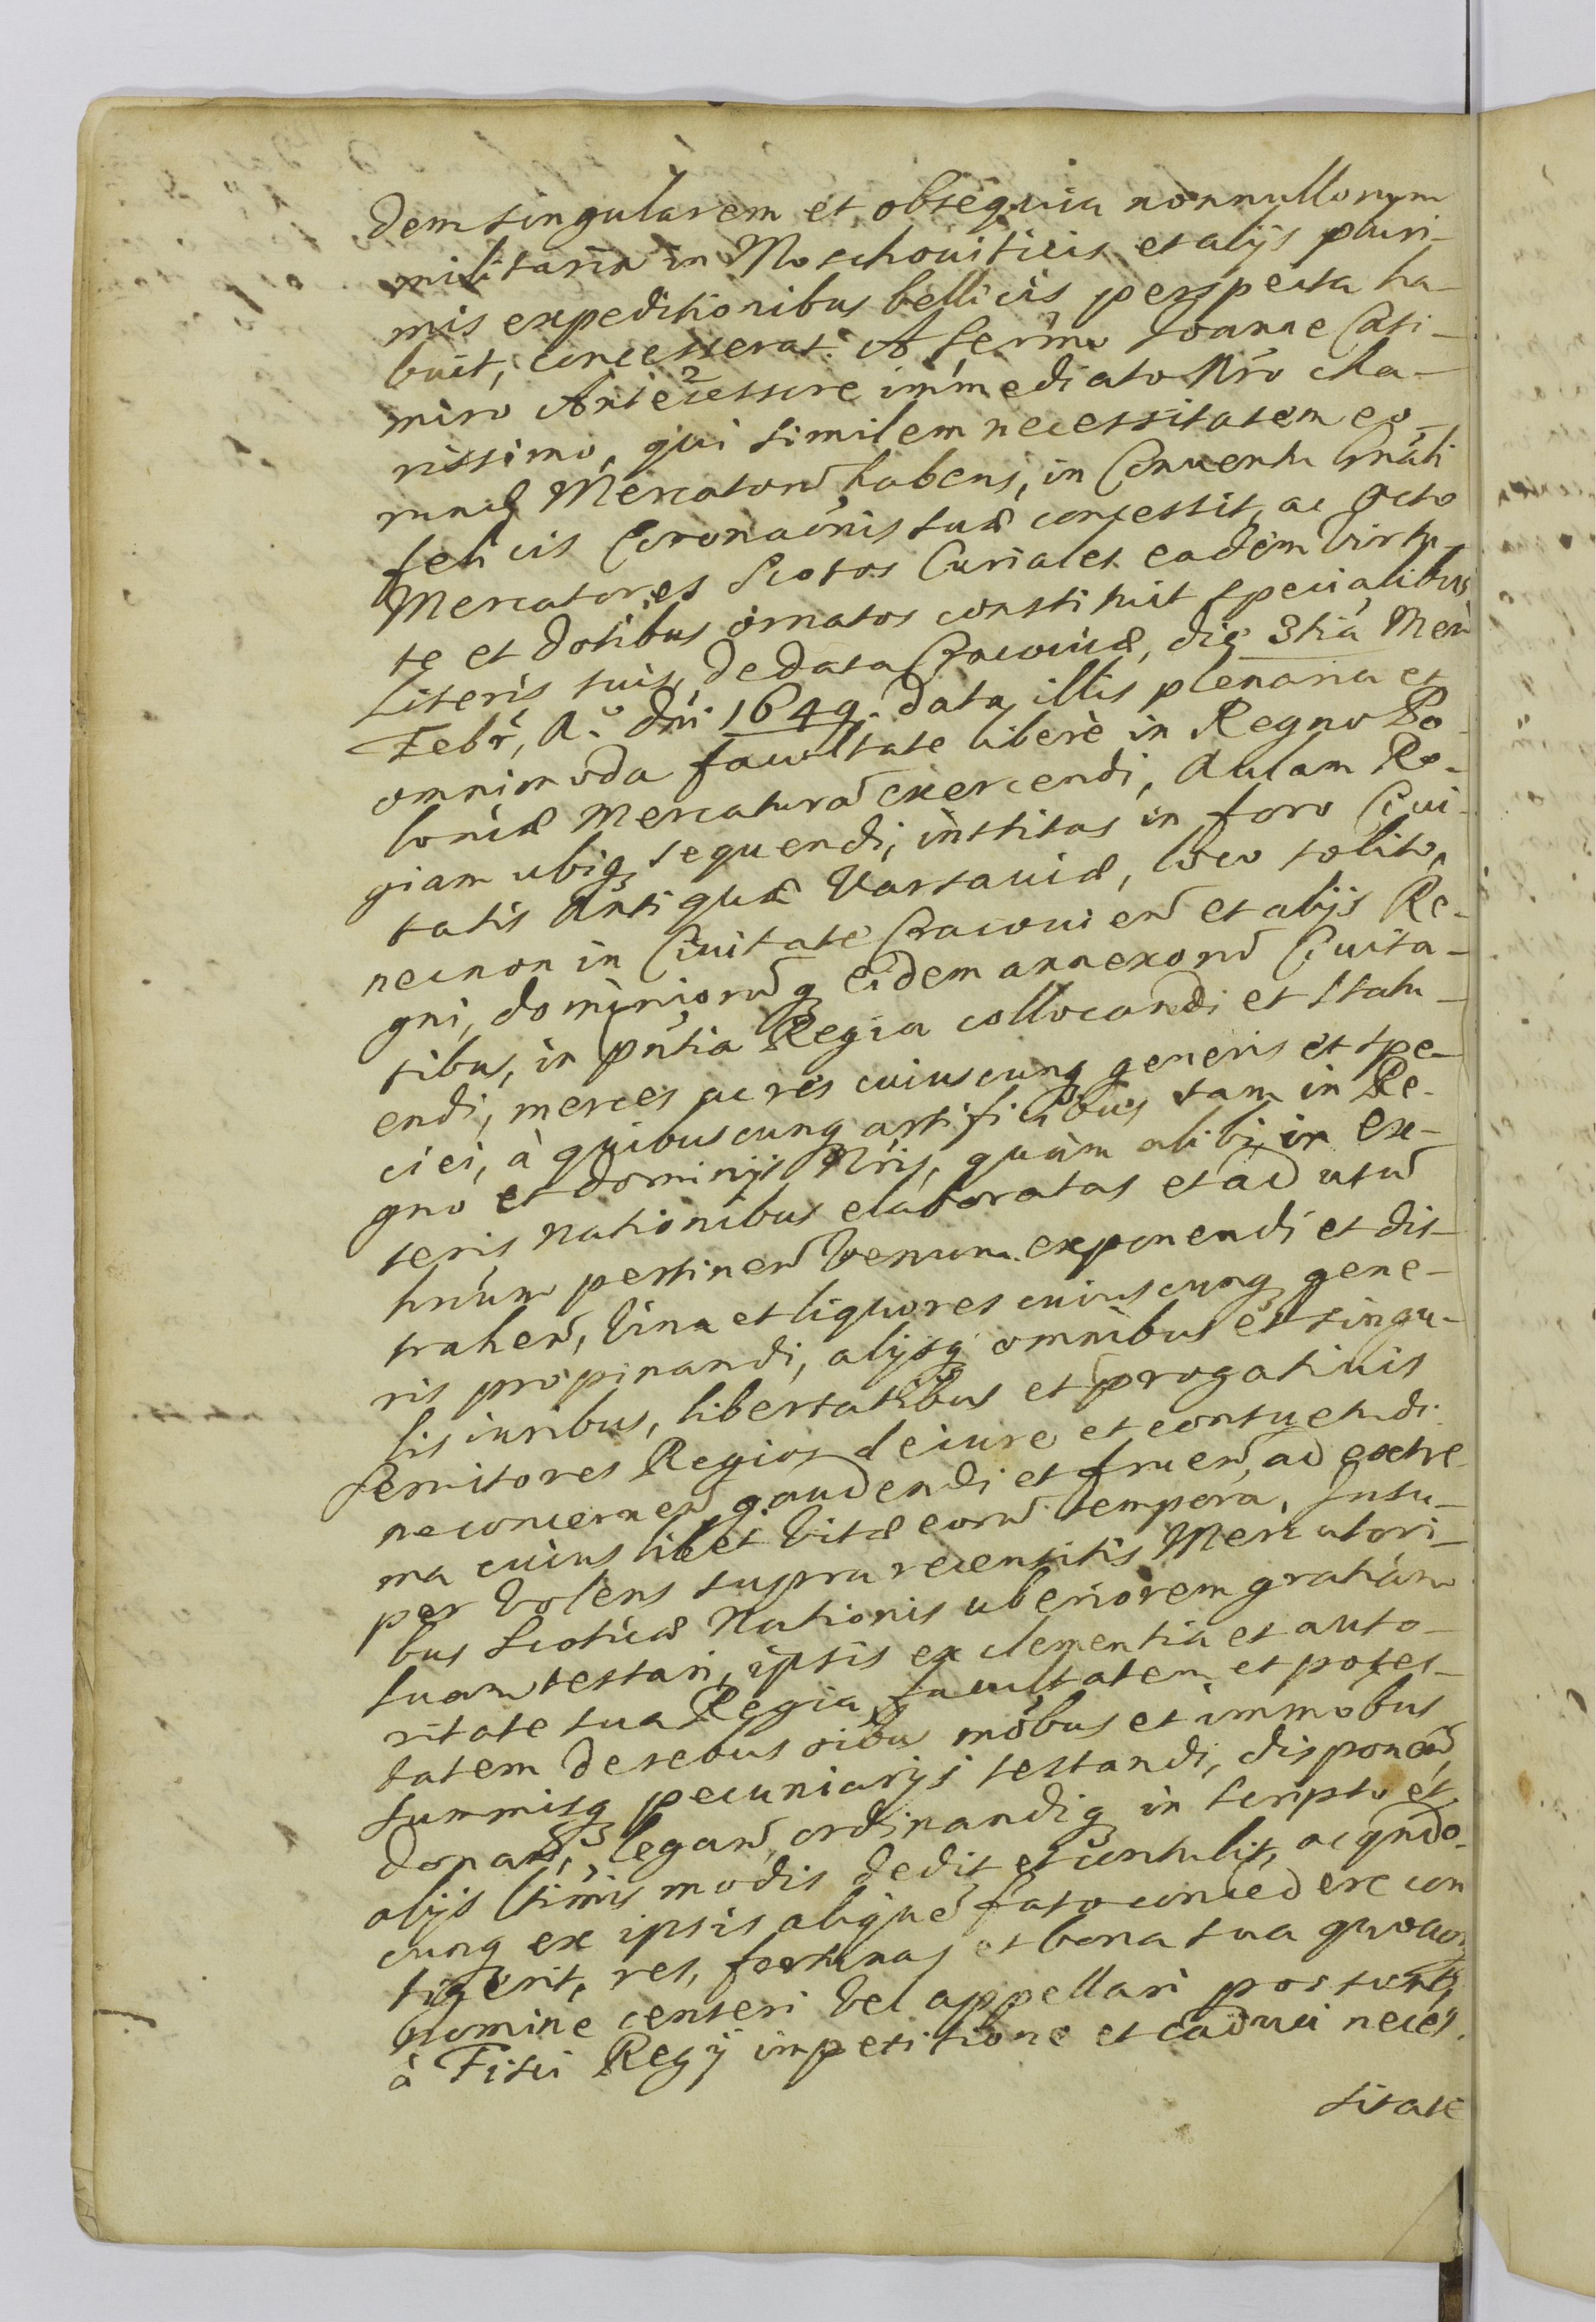 dem singularem et obsequia nonnullorum
militaria in Moschouiticis et alijs pluri-
mis expeditionibus bellicis perspecta ha-
buit, concesserat. A Sermo Ioanne Casi-
miro Antecessore immediato Nro cha-
rissimo, qui similem necessitatem eo-
rundē Mercatorū habens, in Conuentu Gnāli
felicis Coronaōnis suæ concessit, ac octo
Mercatores Scotos Curiales eadem virtu-
te et dotibus ornatos constituit specialibus
Literis suis, de data Cracouiæ, die 3tia Men
Febr, A.º dni 1649. data illis plenaria et
omnimoda facultate liberè in Regno Po-
loniæ Mercaturā exercendi, Aulam Re-
giam ubiq̨ sequendi, institas in foro Ciui-
tatis Antiquæ Varsauiæ, loco solito,
necnon in Ciuitate Cracouieñ et alijs Re-
gni, dominiorūq̨ eidem annexorū Ciuita-
tibus, in pñtia Regia collocandi et statu-
endi, merces ac res cuiuscunq̨ generis et spe-
ciei, à quibuscunq̨ artificibus tam in Re-
gno et dominijs Nris, quàm alibi in ex-
teris nationibus elaboratas et ad usū
hnūm pertineñ venum exponendi et dis-
traheñ, Vina et liquores cuiuscunq̨ gene-
ris propinandi, alijsq̨ omnibus et singu-
lis iuribus, libertatibus et progatiuis
Seruitores Regios de iure et consuetudi-
ne concerneñ gaudendi et frueñ, ad extre-
ma cuiuslibet Vitæ eorū tempora. Insu-
per Volens supra recensitis Mercatori-
bus Scoticæ Nationis uberiorem gratiam
suam testari, ipsis ex clementia et auto-
ritate sua Regia, facultatem et potes-
tatem de rebus oibus mōbus et immōbus
summisq̨ pecuniarijs testandi, disponeñ,
donañ, legañ, ordinandiq̨ in scripto et
alijs ltimis modis dedit et contulit, ac qndo-
cunq̨ ex ipsis aliquē fato concedere con
tigerit, res, fortunas et bona sua quocun
nomine censeri vel appellari possunt,
à Fisci Regij impetitione et caduci neces-
sitate